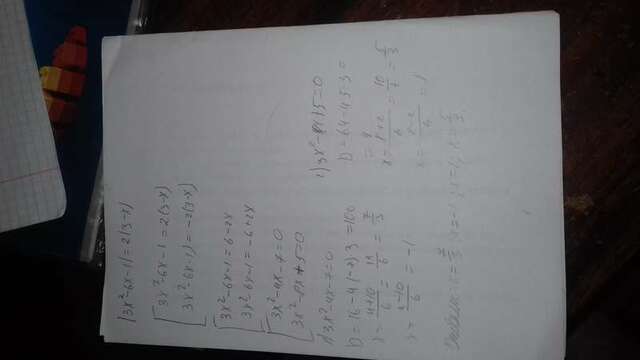 |3x²-6x-1|=2(3-x)
[3x²-6x-1=2(3-x)
3x²-6x-1)=-2(3-x)
[3x²-6x-1=6-2x
3x²-6x-1=-6+2x
[3x²-4x-7=0
3x²-8x+5=0
1) 3x²-4x-7=0
D=16-4(-7)3=100
x=4+10/6=14/6=7/3
x=4-10/6=-1
2) 3x²-8x+5=0
D=64-4·5·3=
=4
x=8+2/6=10/6=5/3
x=8-2/6=1